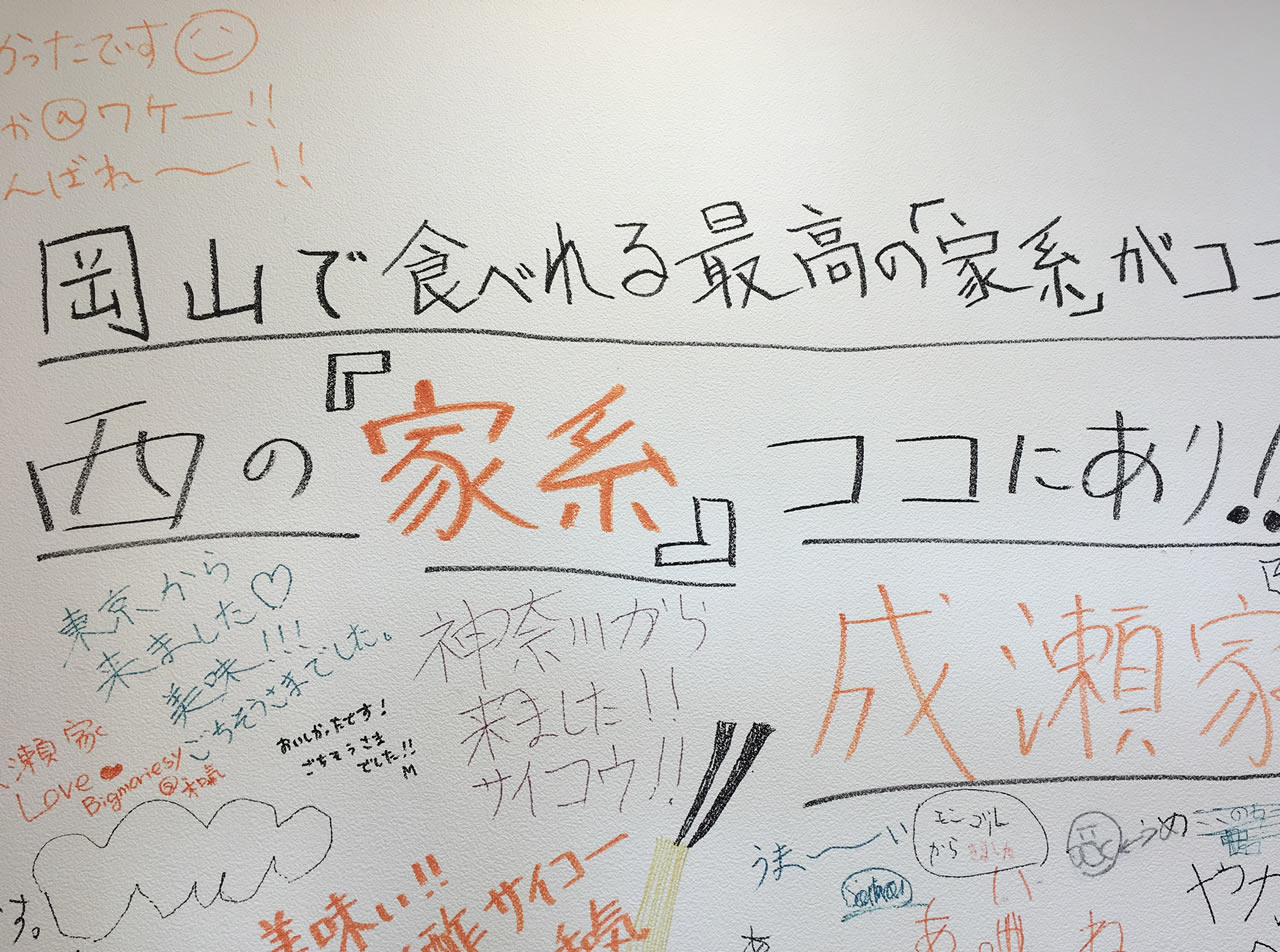 かったです
か@ワケー!!
んばれ〜!!
岡山で食べれる最高の「家系」がココ
西の『家系』ココにあり!!
東京から
来ました♡
美味!!!
ごちそうさまでした。
神奈川から
来ました!!
サイコウ!!
成瀬家
瀬家
Love
Bigmamesy
@和気
おいしかったです!
ごちそうさま
でした!!
M
美味い!!
酢サイコー
和気
す。
うま〜い
モンゴル
から
きました
うめ